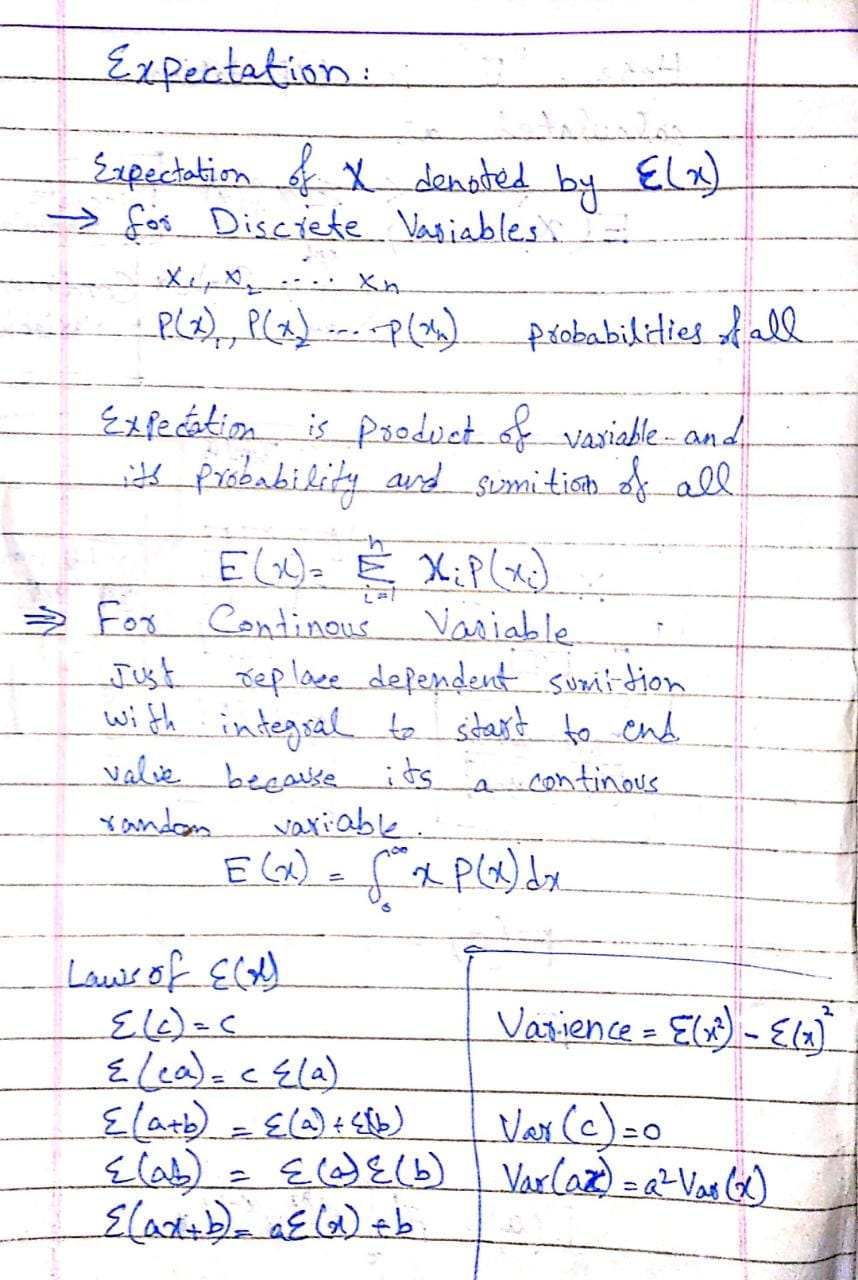 Expectation:
Expectation of X denoted by E(x)
→ for Discrete Variables.
x₁, x₂ .... xₙ
P(x)₁, P(x₂) .... p(xₙ) probabilities of all
Expectation is product of variable and
its probability and sumition of all
E(x) = Σⁿᵢ₌₁ xᵢ P(xᵢ)
⇒ For Continous Variable
Just replace dependent sumition
with integral to start to end
value because its a continous
random variable.
E(x) = ∫₀^∞ x P(x) dx
Laws of E(x)
E(c) = c
E(ca) = c E(a)
E(a+b) = E(a) + E(b)
E(ab) = E(a) E(b)
E(ax+b) = aE(x) + b
Varience = E(x²) - E(x)²
Var(c) = 0
Var(ax) = a² Var(x)